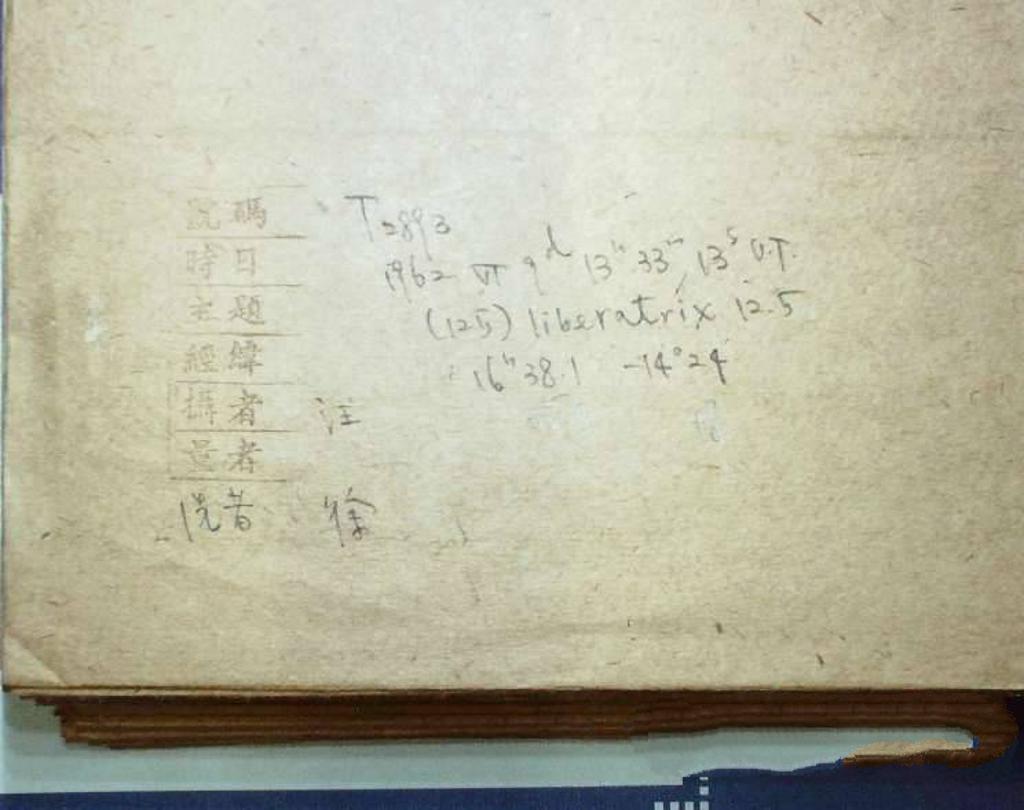 號碼 T2893
時日 1962 VI 9d 13h 33m 13s U.T.
主題 (125) liberatrix 12.5
經緯 16h38.1 -14°24
攝者 注
量者
洗者 徐